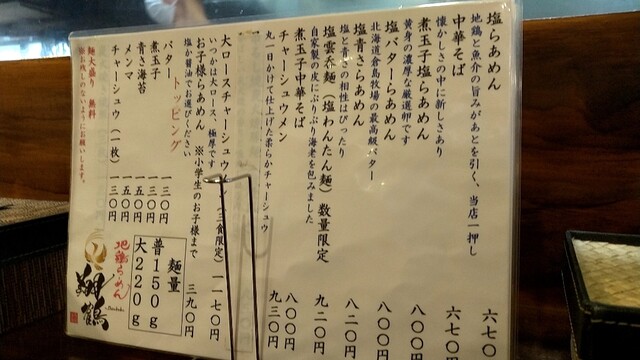 塩らあめん 六七〇
地鶏と魚介の旨みがあとを引く、当店一押し
中華そば 六七〇円
懐かしさの中に新しさあり
煮玉子塩らあめん 八〇〇円
黄身の濃厚な厳選卵です
塩バターらあめん 八〇〇円
北海道倉島牧場の最高級バター
塩青さらあめん 八二〇円
塩と青さの相性はぴったり
塩雲呑麺(塩わんたん麺)数量限定 九二〇円
自家製の皮にぷりぷり海老を包みました
煮玉子中華そば 八〇〇円
チャーシュウメン 九三〇円
丸一日かけて仕上げた柔らかチャーシュウ
大ロースチャーシュウ 三食限定) 一一七〇円
いつかは大ロース、極厚です
お子様らあめん ※小学生のお子様まで 三九〇円
塩か醤油でお選びください
トッピング
バター 一三〇円
煮玉子 一三〇円
青さ海苔 一五〇円
メンマ 一五〇円
チャーシュウ(一枚) 一三〇円
麺大盛り 無料
お残しのないようにお願いします。
麺量
普150g
大220g
地鶏らぁめん
翔鶴